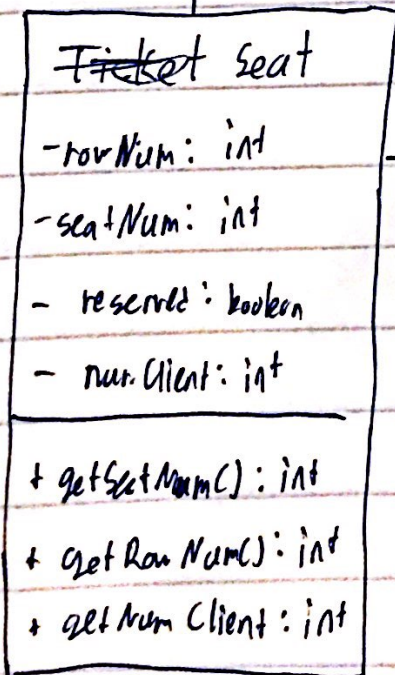 Ticket Seat
- rowNum: int
- seatNum: int
- reserved: boolean
- num.Client: int
+ getSeatNum(): int
+ getRowNum(): int
+ getNumClient: int